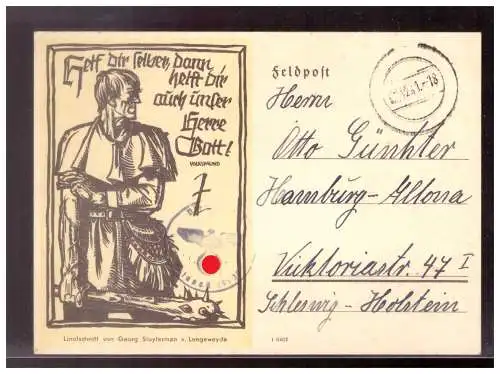 Helf dir selber, dann
helft dir
auch unser
Herre
Gott!
VOLKSMUND
Linolschnitt von Georg Sluyterman v. Langeweyde
Feldpost
Herrn
Otto Günhter
Hamburg-Altona
Viktoriastr. 47 I
Schleswig-Holstein